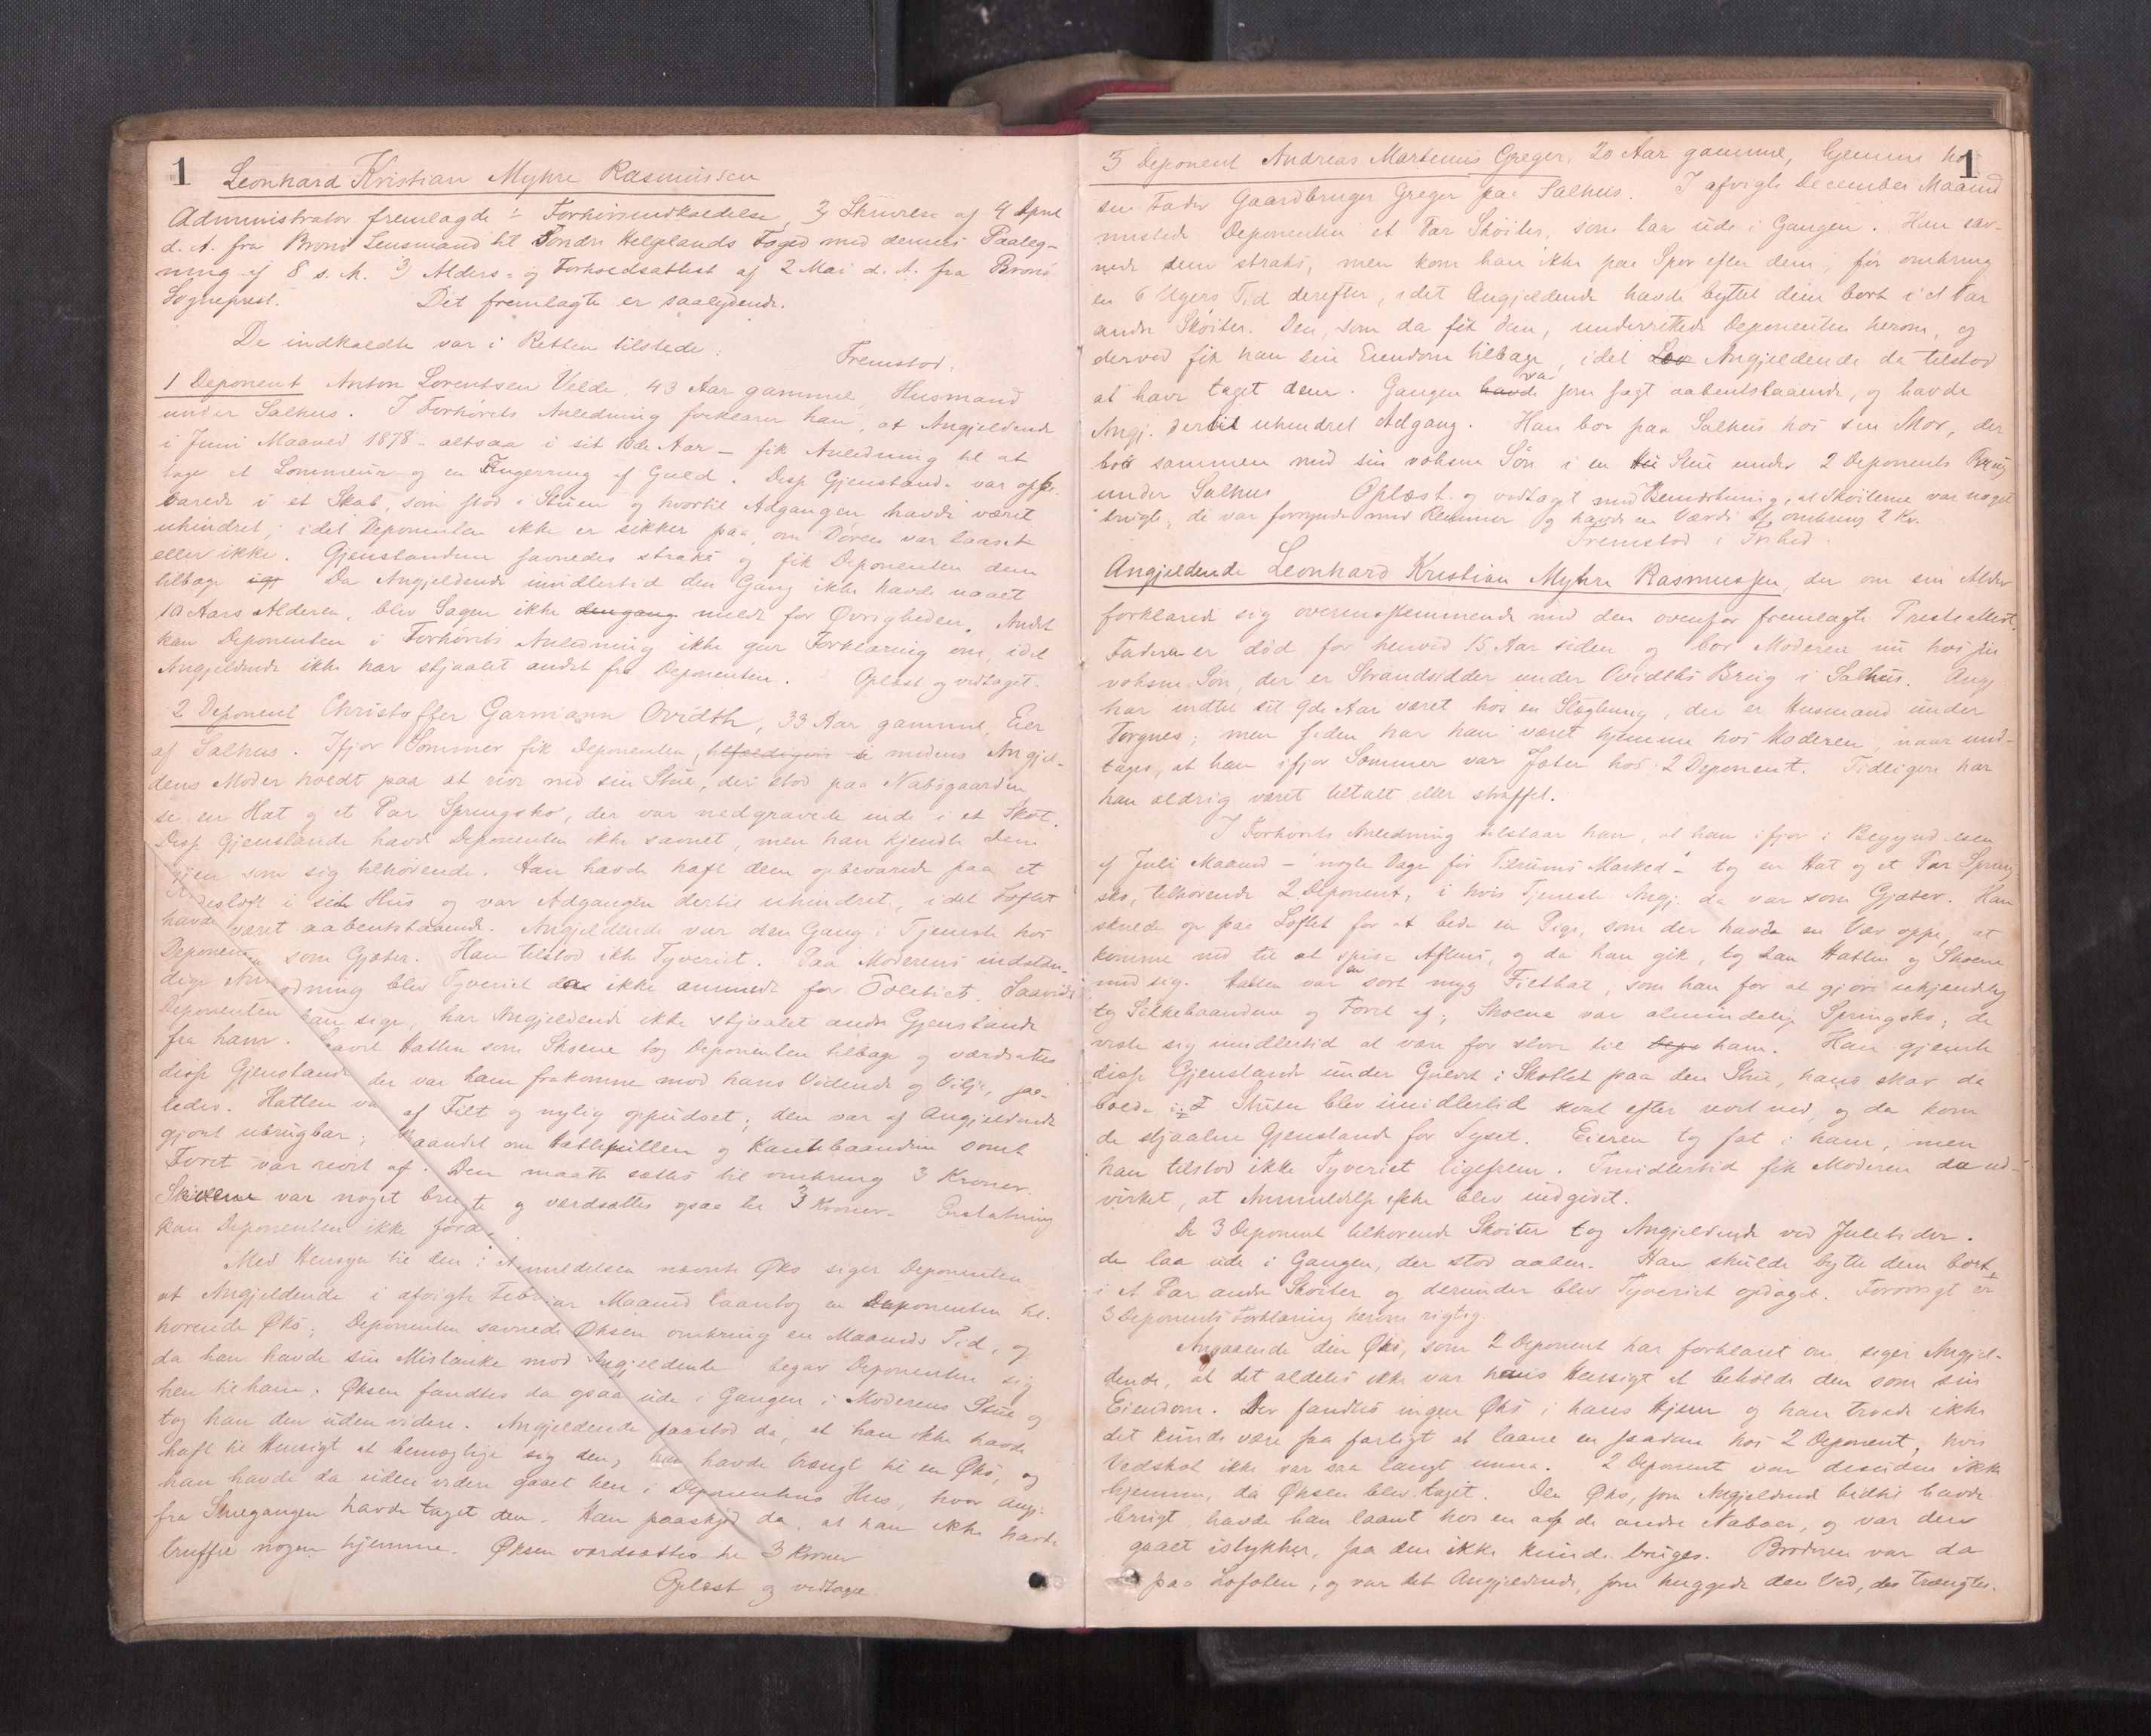 1
Leonhard Kristian Myhre Rasmussen
Administrator fremlagde 1) Forhørsindkaldelse, 2) Skrivelse af 4 April
d. A. fra Brønø Lensmand til Søndre Helgelands Foged med dennes Paateg-
ning af 8 s. M. 3) Alders- og Forholdsattest af 2 Mai d. A. fra Brønø
Sogneprest. Det fremlagte er saalydende.
De indkaldte var i Retten tilstede.
Fremstod.
1 Deponent Anton Lorentsen Velde, 43 Aar gammel, Husmand
under Salhus. I Forhørets Anledning forklarer han, at Angjeldende
i Juni Maaned 1878 - altsaa i sit 10de Aar - fik Anledning til at
tage et Lommeur og en Fingerring af Guld. Disse Gjenstande var opbe-
varede i et Skab, som stod i Stuen og hvortil Adgangen havde været
uhindret, idet Deponenten ikke er sikker paa, om Døren var laaset
eller ikke. Gjenstandene savnedes straks og fik Deponenten dem
tilbage igj Da Angjeldende imidlertid den Gang ikke havde naaet
10 Aars Alderen, blev Sagen ikke dengang meldt for Øvrigheden. Andet
kan Deponenten i Forhørets Anledning ikke give Forklaring om, idet
Angjeldende ikke har stjaalet andet fra Deponenten. Oplæst og vedtaget.
2 Deponent Christoffer Garmann Ovidth, 33 Aar gammel, Eier
af Salhus. Ifjor Sommer fik Deponenten, tilfældigvis medens Angjel-
dens Moder holdt paa at rive ned sin Stue, der stod paa Nabogaarden
se en Hat og et Par Springsko, der var nedgravede inde i et Skot.
Disse Gjenstande havde Deponenten ikke savnet, men han kjendte dem
igjen som sig tilhørende. Han havde havt dem opbevarede paa et
Loft i sit Hus og var Adgangen dertil uhindret, idet Loftet
havde været aabentstaaende. Angjeldende var den Gang i Tjeneste hos
Deponenten som Gjæter. Han tilstod ikke Tyveriet. Paa Moderens indstæn-
dige Anmodning blev Tyveriet da ikke anmeldt for Politiet. Saavidt
Deponenten kan sige, har Angjeldende ikke stjaalet andre Gjenstande
fra ham. Saavel Hatten som Skoene tog Deponenten tilbage og værdsattes
disse Gjenstande der var ham frakomne mod hans Vidende og Vilje, saa-
ledes. Hatten var af Filt og nylig oppudset; den var af Angjeldende
gjort ubrugbar; Baandet om Hattepullen og Kantebaandene samt
Foret var revet af. Den maatte sættes til omkring 3 Kroner.
Skoene var noget brugte og værdsattes ogsaa til 3 Kroner. Erstatning
kan Deponenten ikke fordre.
Med Hensyn til den i Anmeldelsen nævnte Øks siger Deponenten
at Angjeldende i afvigte Februar Maaned laantog en Deponenten til-
hørende Øks; Deponenten savnede Øksen omkring en Maaneds Tid, og
da han havde sin Mistanke mod Angjeldende begav Deponenten sig
hen til ham. Øksen fandtes da ogsaa ude i Gangen i Moderens Stue og
tog han den uden videre. Angjeldende paastod da, at han ikke havde
havt til Hensigt at bemægtige sig den, han havde trængt til en Øks, og
han havde da uden videre gaaet hen i Deponentens Hus, hvor Angj.
fra Stuegangen havde taget den. Han paaskjød da, at han ikke havde
truffet nogen hjemme. Øksen værdsattes til 3 Kroner
Oplæst og vedtaget
1
3 Deponent Andreas Martenius Greger, 20 Aar gammel, hjemme hos
sin Fader Gaardbruger Greger paa Salhus. I afvigte December Maaned
mistede Deponenten et Par Skøiter, som laa ude i Gangen. Han sav-
nede dem straks, men kom han ikke paa Spor efter dem, før omkring
en 6 Ugers Tid derefter, idet Angjeldende havde byttet dem bort i et Par
andre Skøiter. Den, som da fik dem, underrettede Deponenten herom, og
derved fik han sin Eiendom tilbage, idet Angjeldende da tilstod
at have taget dem. Gangen havde var som sagt aabentstaaende, og havde
Angj. dertil uhindret Adgang. Han bor paa Salhus hos sin Mor, der
bor sammen med sin voksne Søn i en Stue under 2 Deponents Brug
under Salhus Oplæst og vedtaget med Bemærkning, at Skøiterne var noget
brugte, de var forsynede med Remmer og havde en Værdi af omkring 2 Kr.
Fremstod i Frihed.
Angjeldende Leonhard Kristian Myhre Rasmussen, der om sin Alder
forklarede sig overensstemmende med den ovenfor fremlagte Presteattest.
Faderen er død for henved 15 Aar siden og bor Moderen nu hos sin
voksne Søn, der er Strandsidder under Ovidths Brug i Salhus. Angj
har indtil sit 9de Aar været hos en Slægtning, der er Husmand under
Torgnes; men siden har han været hjemme hos Moderen, naar und-
tages, at han ifjor Sommer var Jæter hos 2 Deponent. Tidligere har
han aldrig været tiltalt eller straffet.
I Forhørets Anledning tilstaar han, at han ifjor i Begyndelsen
af Juli Maaned - "nogle Dage før Tilrums Marked" - tog en Hat og et Par Spring-
sko, tilhørende 2 Deponent, i hvis Tjeneste Angj. da var som Gjæter. Han
skulde op paa Loftet for at bede en Pige, som der havde en Væv oppe, at
komme ned til at spise Aftens, og da han gik, tog han Hatten og Skoene
med sig. Hatten var en sort myg Filthat, som han for at gjøre ukjendelig
tog Silkebaandene og Foret af; Skoene var almindelige Springsko; de
viste sig imidlertid at være for store til ham. Han gjemte
disse Gjenstande under Gulvet i Skottet paa den Stue, hans Mor da
boede i. Stuen blev imidlertid kort efter revet ned, og da kom
de stjaalne Gjenstande for Lyset. Eieren tog fat i ham, men
han tilstod ikke Tyveriet ligefrem. Imidlertid fik Moderen da ud-
virket, at Anmeldelse ikke blev indgivet.
De 3 Deponent tilhørende Skøiter tog Angjeldende ved Juletider.
de laa ude i Gangen, der stod aaben. Han skulde bytte dem bort
i et Par andre Skøiter og derunder blev Tyveriet opdaget. Forøvrigt er
3 Deponents Forklaring herom rigtig.
Angaaende den Øks, som 2 Deponent har forklaret om, siger Angjel-
dende, at det aldeles ikke var hans Hensigt at beholde den som sin
Eiendom. Der fandtes ingen Øks i hans Hjem og han troede ikke
det kunde være saa farligt at laane en saadan hos 2 Deponent, hvis
Vedskot ikke var saa langt unna. 2 Deponent var desuden ikke
hjemme, da Øksen blev taget. Den Øks, som Angjeldende hidtil havde
brugt, havde han laant hos en af de andre Naboer, og var den
gaaet istykker, saa den ikke kunde bruges. Broderen var da
paa Lofoten, og var det Angjeldende, som huggede den Ved, der trængtes.